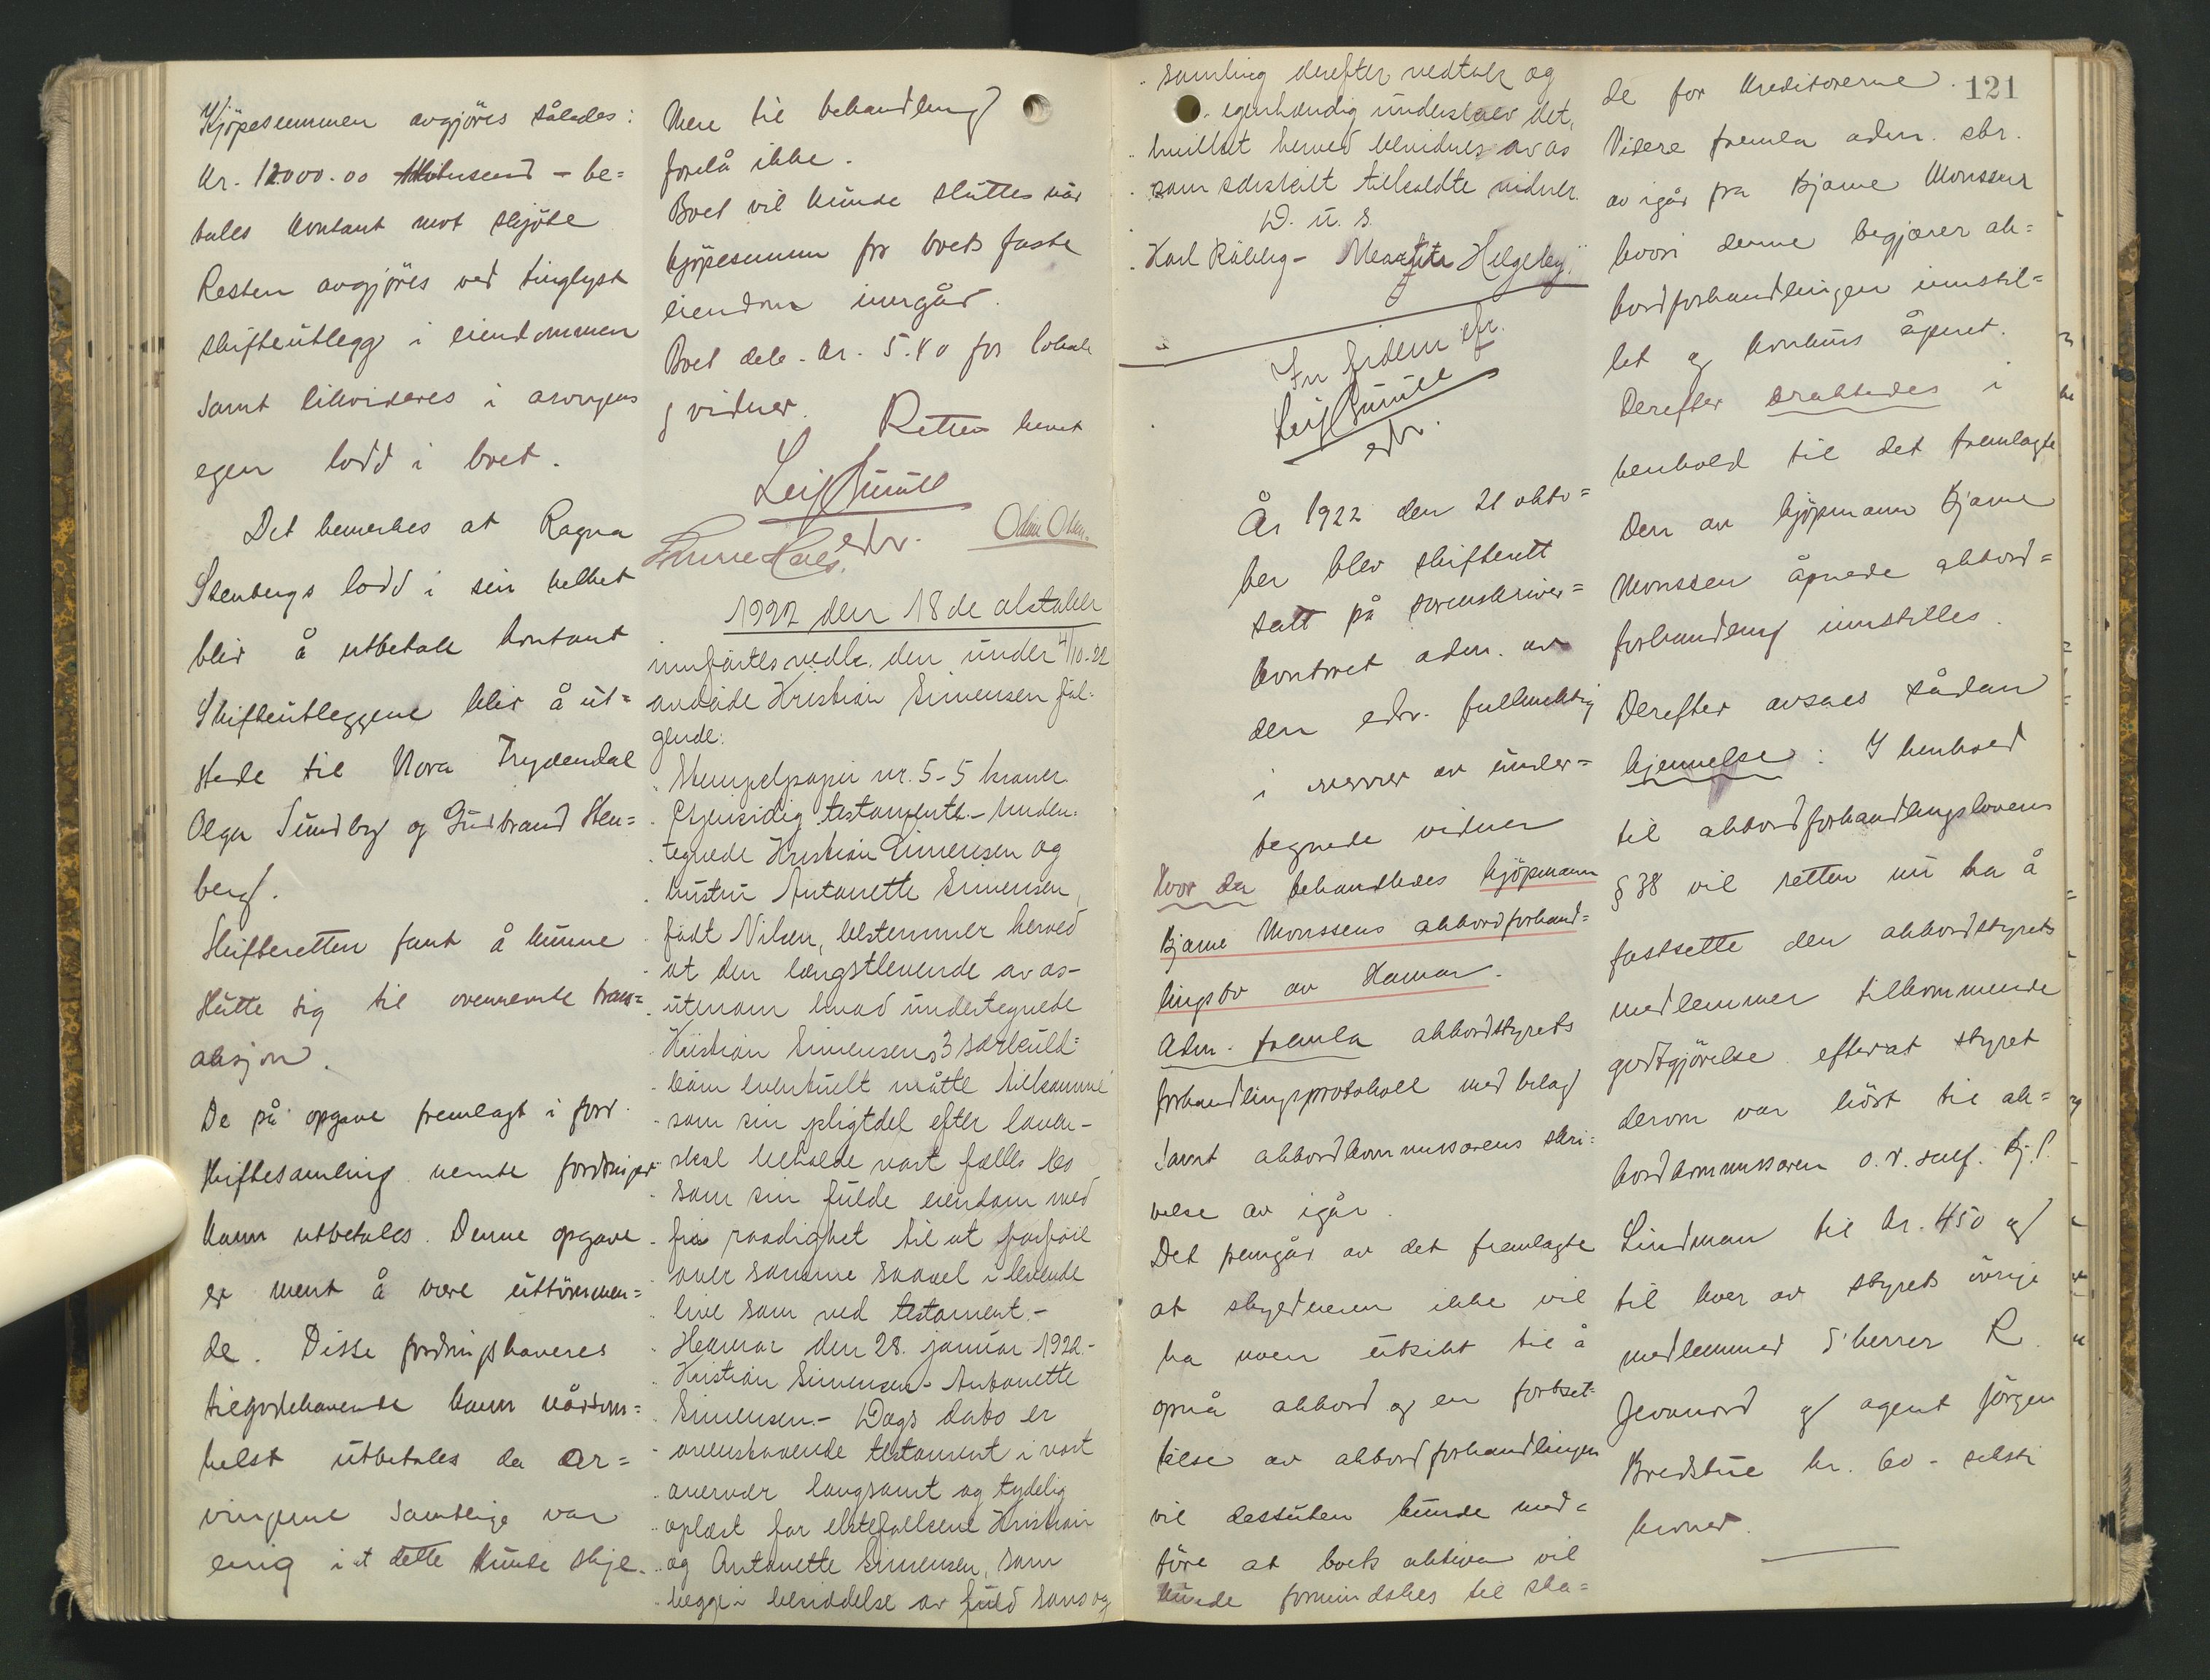 Kjöpesummen avgjöres således:
Kr. 12000.00 be=
tales kontant mot skjöte
Resten avgjöres ved tinglyst
skifteutlegg i eiendommen
samt likvideres i arvingens
egen lodd i boet.
Det bemerkes at Ragna
Stenbergs lodd i sin helhet
blir å utbetale kontant
Skifteutleggene blir å ut=
stede til Nora Frydendal
Olga Sundby og Gudbrand Sten=
berg.
Skifteretten fant å kunne
slutte sig til ovennevnte trans=
aksjon.
De på opgave fremlagt i forr.
skiftesamling nevnte fordringer
kann utbetales. Denne opgave
er ment å være uttömmen=
de. Disse fordringshaveres
tilgodehavende kann nårsom=
helst utbetales da ar=
vingene samtlige var
enig i at dette kunde skje.
Mere til behandling
forelå ikke.
Boet vil kunde sluttes når
kjöpesummen for boets faste
eiendom inngår.
Boet deb. kr. 5.40 for lokale
og vidner.
Retten hevet
Leif
edv.
1922 den 18de oktober
innförtes vedk. den under 4/10-22
avdöde Kristian Simensen föl-
gende:
"Stempelpapir nr. 5-5 kroner
Gjensidig testamente.- Under-
tegnede Kristian Simensen og
hustru Antonette Simensen,
födt Nilsen, bestemmer herved
at den længstlevende av os-
utenom hvad undertegnede
Kristian Simensens 3 særkuld=
barn eventuelt måtte tilkomme
som sin pligtdel efter loven-
skal beholde vort fælles bo
som sin fulde eiendom med
fri raadighet til at forföie
over samme saavel i levende
live som ved testament.-
Hamar den 28. januar 1922.-
Kristian Simensen- Antonette
Simensen.- Dags dato er
ovenstaaende testament i vort
overvær langsamt og tydelig
oplæst for ektefællerne Kristian
og Antonette Simensen, som
begge i besiddelse av fuld sans og
samling derefter vedtok og
egenhændig underskrev det,
hvilket herved bevidnes av os
som særskilt tilkaldte vidner.
D. u. s.
Karl Råbbig- Helgeby."
In fidem efr.
Leif
edv.
År 1922 den 21 okto=
ber blev skifterett
satt på sorenskriver=
kontoret adm. av
den edv. fullmektig
i nærvær av under=
tegnede vidner
Hvor da behandledes kjöpmann
Bjarne Monssens akkordforhand=
lingsbo av Hamar.
Adm. fremla akkordstyrets
forhandlingsprotokoll med bilag
samt akkordkommissærens skri=
velse av igår.
Det fremgår av det fremlagte
at skyldneren ikke vil
ha noen utsikt til å
opnå akkord og en fortset=
telse av akkordforhandlingen
vil dessuten kunde med=
före at boets aktiva vil
kunde formindskes til ska=
de for kreditorerne. 121
Videre fremla adm. skr.
av igår fra Bjarne Monssen
hvori denne begjærer ak=
kordforhandlingen innstil=
let og konkurs åpnet.
Derefter besluttedes i
henhold til det fremlagte
Den av kjöpmann Bjarne
Monssen åpnede akkord=
forhandling innstilles.
Derefter avsaes sådan
kjennelse: I henhold
til akkordforhandlingslovens
§ 38 vil retten nu ha å
fastsette den akkordstyrets
medlemmer tilkommende
godtgjörelse efterat styret
derom var hört til ak=
kordkommissæren o.r.sakf. Bj. P.
Lindman til kr. 450 og
til hver av styrets övrige
medlemmer d'herrer R.
Jevanord og agent Jörgen
Bredstue kr. 60 - seksti
kroner.